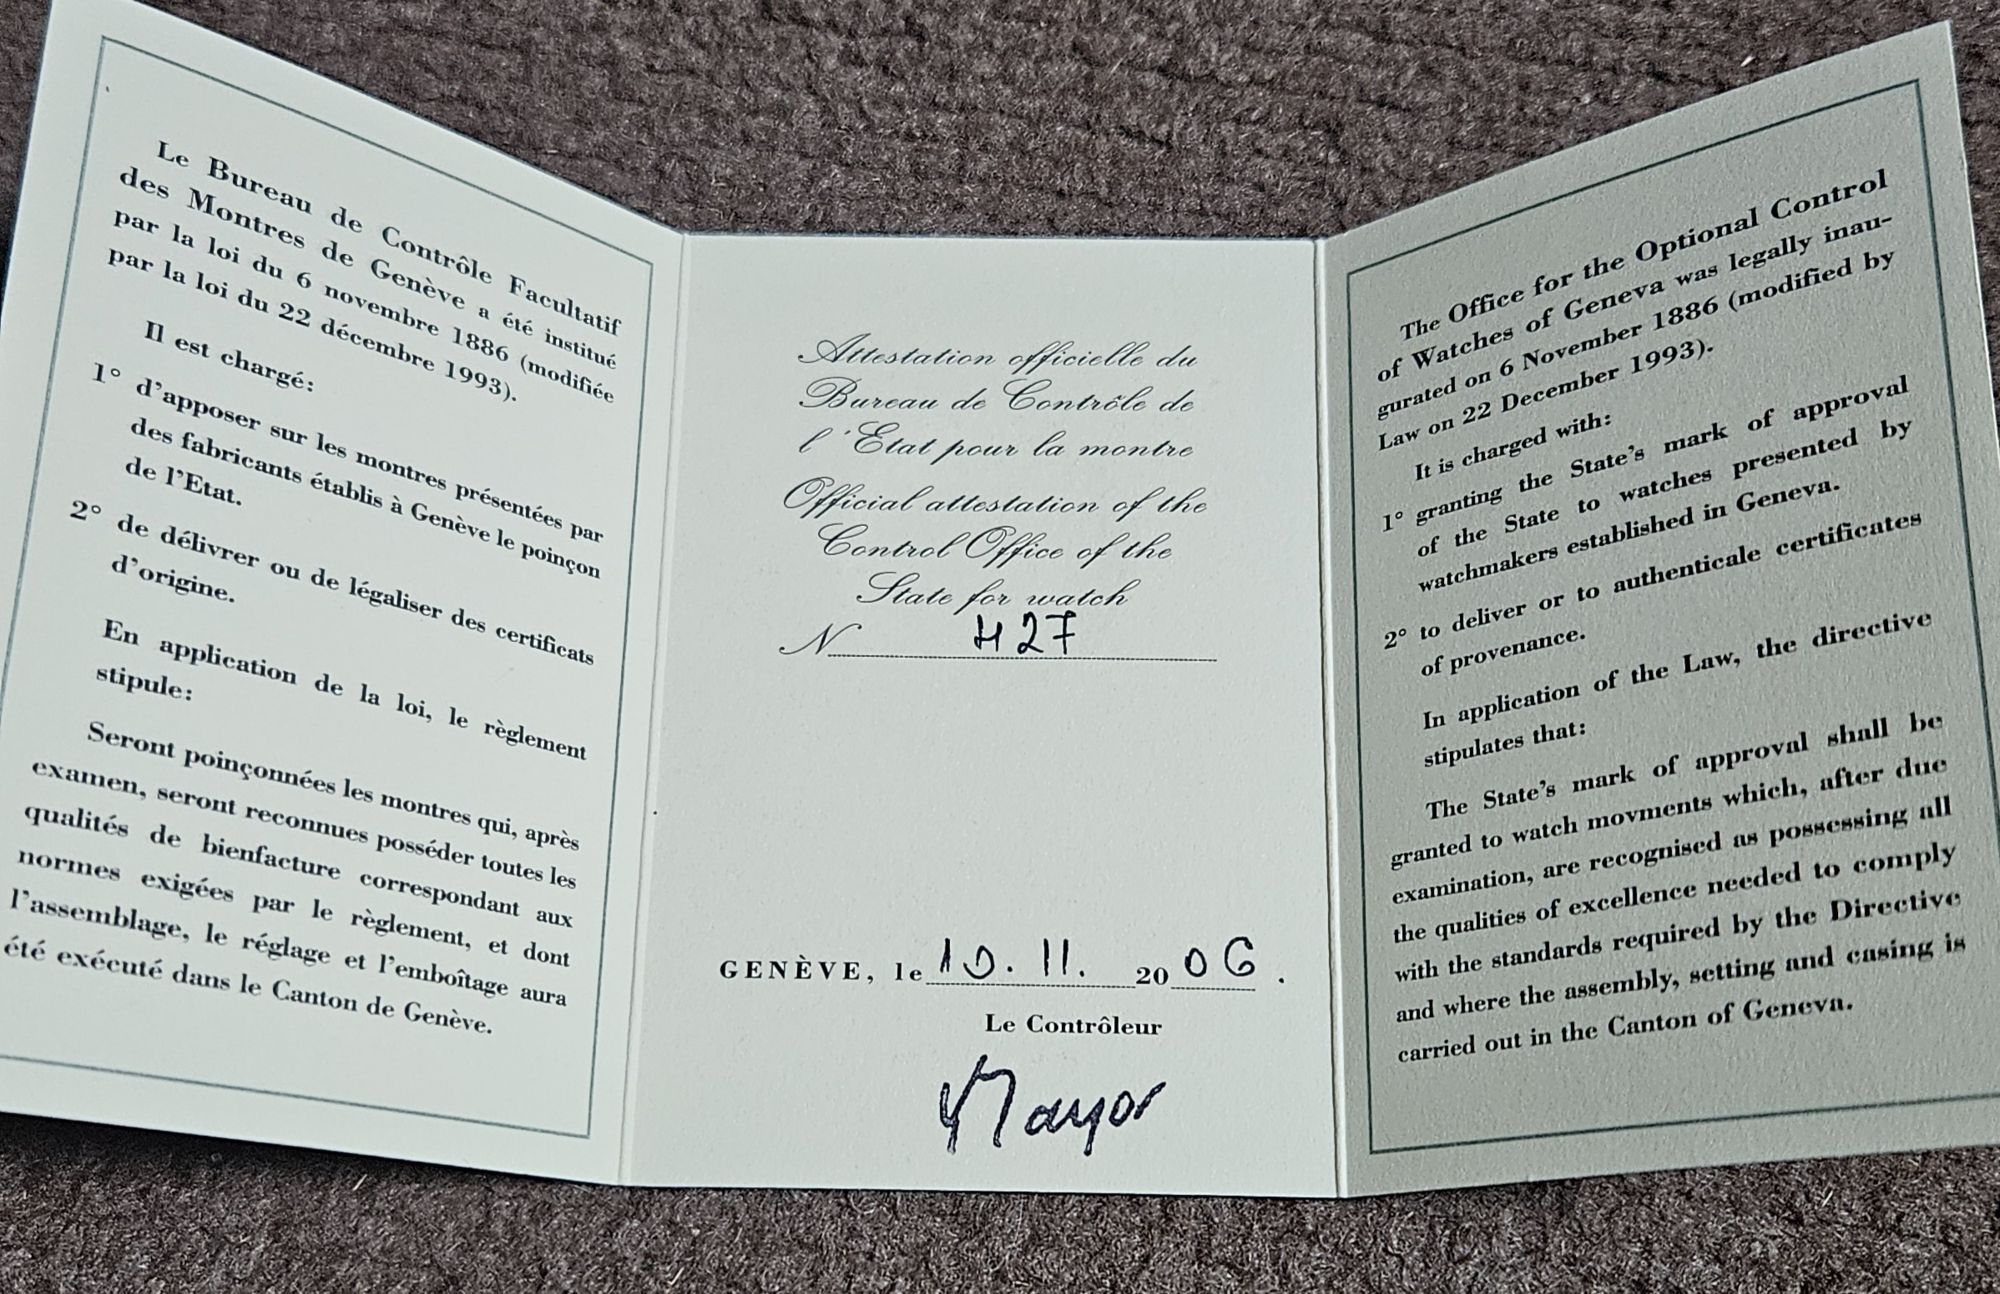 Le Bureau de Contrôle Facultatif
des Montres de Genève a été institué
par la loi du 6 novembre 1886 (modifiée
par la loi du 22 décembre 1993).
Il est chargé:
1° d'apposer sur les montres présentées par
des fabricants établis à Genève le poinçon
de l'Etat.
2° de délivrer ou de légaliser des certificats
d'origine.
En application de la loi, le règlement
stipule:
Seront poinçonnées les montres qui, après
examen, seront reconnues posséder toutes les
qualités de bienfacture correspondant aux
normes exigées par le règlement, et dont
l'assemblage, le réglage et l'emboîtage aura
été exécuté dans le Canton de Genève.
Attestation officielle du
Bureau de Contrôle de
l'Etat pour la montre
Official attestation of the
Control Office of the
State for watch
N 427
GENÈVE, le 10. 11. 2006.
Le Contrôleur
Mayor
The Office for the Optional Control
of Watches of Geneva was legally inau-
gurated on 6 November 1886 (modified by
Law on 22 December 1993).
It is charged with:
1° granting the State's mark of approval
of the State to watches presented by
watchmakers established in Geneva.
2° to deliver or to authenticale certificates
of provenance.
In application of the Law, the directive
stipulates that:
The State's mark of approval shall be
granted to watch movments which, after due
examination, are recognised as possessing all
the qualities of excellence needed to comply
with the standards required by the Directive
and where the assembly, setting and casing is
carried out in the Canton of Geneva.